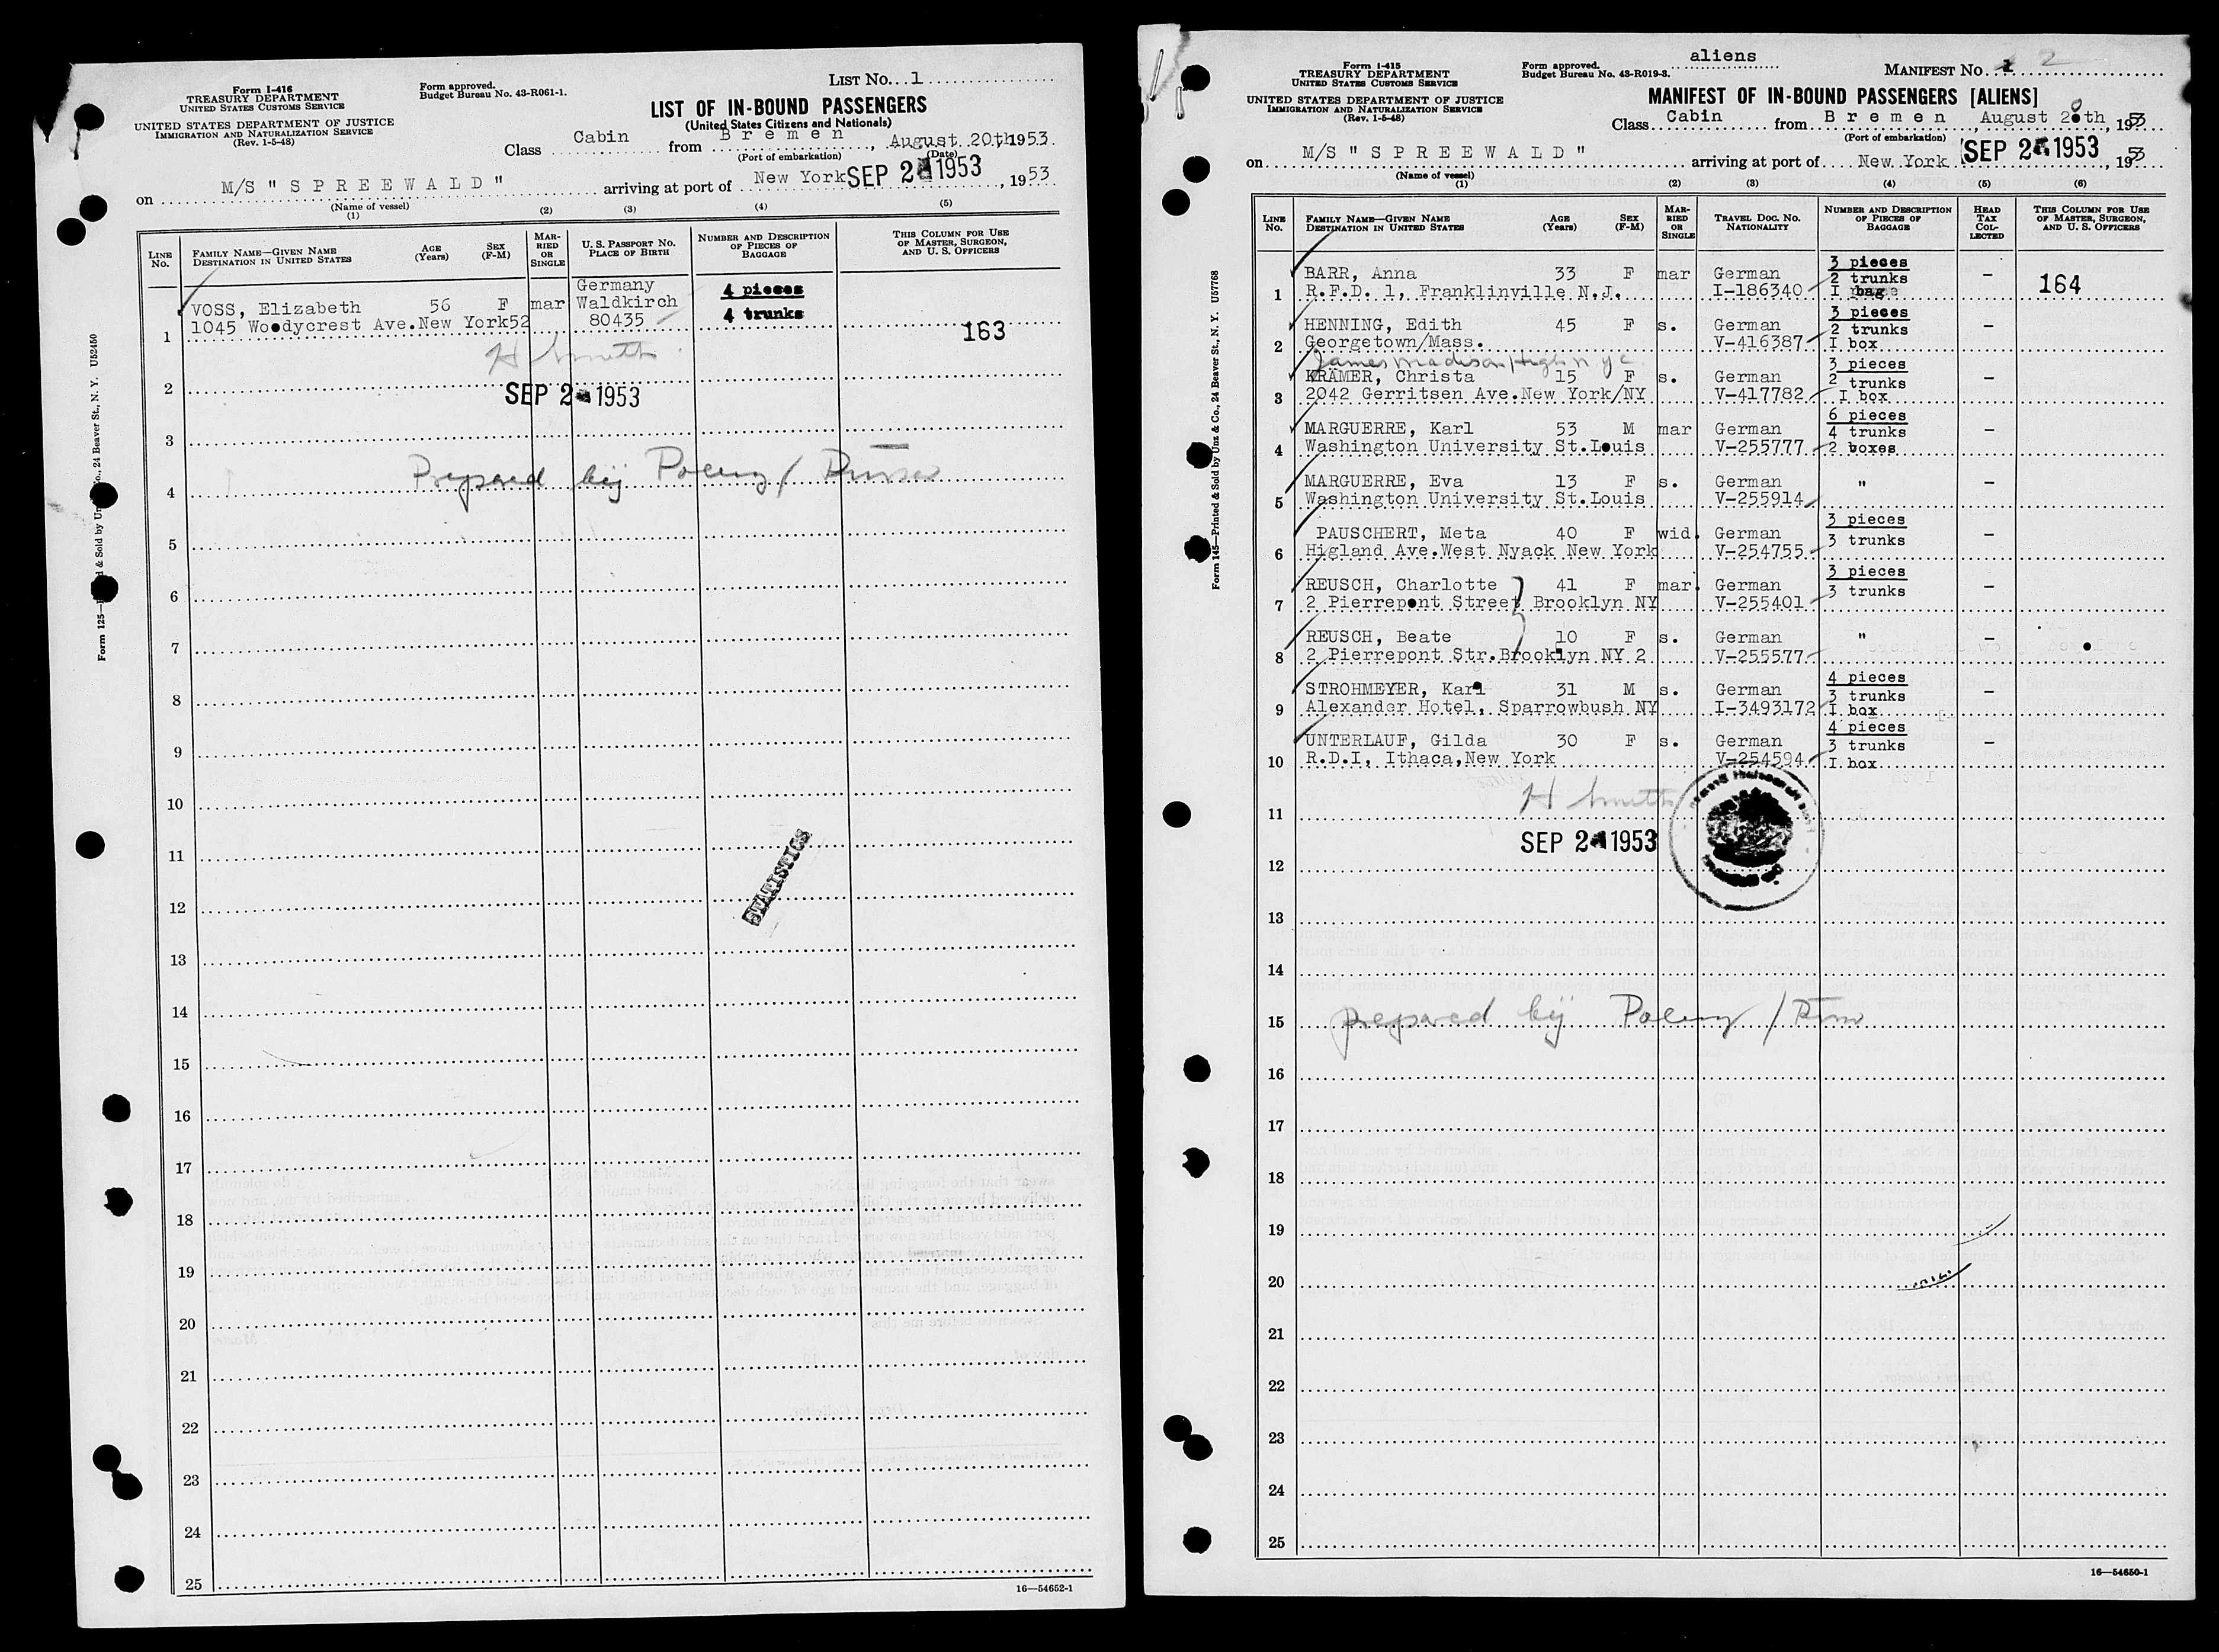 Form I-416
TREASURY DEPARTMENT
UNITED STATES CUSTOMS SERVICE
UNITED STATES DEPARTMENT OF JUSTICE
IMMIGRATION AND NATURALIZATION SERVICE
(Rev. 1-5-48)
Form approved.
Budget Bureau No. 43-R061-1.
LIST NO. 1
LIST OF IN-BOUND PASSENGERS
(United States Citizens and Nationals)
Class Cabin from Bremen, August 20th, 1953
(Port of embarkation) (Date)
on M/S "SPREEWALD" arriving at port of New York SEP 2 1953, 1953
(Name of vessel)
(1) (2) (3) (4) (5)
LINE No. FAMILY NAME—GIVEN NAME DESTINATION IN UNITED STATES AGE (Years) SEX (F-M) MARRIED OR SINGLE U. S. PASSPORT NO. PLACE OF BIRTH NUMBER AND DESCRIPTION OF PIECES OF BAGGAGE THIS COLUMN FOR USE OF MASTER, SURGEON, AND U. S. OFFICERS
Germany
VOSS, Elizabeth 56 F mar Waldkirch 4 pieces
1 1045 Woodycrest Ave.New York52 80435 4 trunks 163
H Smith
2 SEP 2 1953
3
4 Prepared by
5
6
7
8
9
10
11
STATISTICS
12
13
14
15
16
17
18
19
20
21
22
23
24
25
16—54652-1
Form 125—Printed & Sold by Unz & Co., 24 Beaver St., N. Y. U52450
aliens
Form I-415
TREASURY DEPARTMENT
UNITED STATES CUSTOMS SERVICE
UNITED STATES DEPARTMENT OF JUSTICE
IMMIGRATION AND NATURALIZATION SERVICE
(Rev. 1-5-48)
Form approved.
Budget Bureau No. 43-R019-3.
MANIFEST NO. 2
MANIFEST OF IN-BOUND PASSENGERS [ALIENS]
Class Cabin from Bremen, August 20th, 1953
(Port of embarkation)
on M/S "SPREEWALD" arriving at port of New York SEP 2 1953, 1953
(Name of vessel)
(1) (2) (3) (4) (5) (6)
LINE No. FAMILY NAME—GIVEN NAME DESTINATION IN UNITED STATES AGE (Years) SEX (F-M) MARRIED OR SINGLE TRAVEL DOC. NO. NATIONALITY NUMBER AND DESCRIPTION OF PIECES OF BAGGAGE HEAD TAX COLLECTED THIS COLUMN FOR USE OF MASTER, SURGEON, AND U. S. OFFICERS
3 pieces
BARR, Anna 33 F mar German 2 trunks – 164
1 R.F.D. 1, Franklinville N.J. I-186340 I bag
3 pieces
HENNING, Edith 45 F s. German 2 trunks –
2 Georgetown/Mass. V-416387 I box
James Madison High N Y C 3 pieces
KRÄMER, Christa 15 F s. German 2 trunks –
3 2042 Gerritsen Ave.New York/NY V-417782 I box
6 pieces
MARGUERRE, Karl 53 M mar German 4 trunks –
4 Washington University St.Louis V-255777 2 boxes
MARGUERRE, Eva 13 F s. German " –
5 Washington University St.Louis V-255914
3 pieces
PAUSCHERT, Meta 40 F wid. German 3 trunks –
6 Higland Ave.West Nyack New York V-254755
3 pieces
REUSCH, Charlotte 41 F mar. German 3 trunks –
7 2 Pierrepont Street Brooklyn NY V-255401
REUSCH, Beate 10 F s. German " –
8 2 Pierrepont Str.Brooklyn NY 2 V-255577
4 pieces
STROHMEYER, Karl 31 M s. German 3 trunks –
9 Alexander Hotel, Sparrowbush NY I-3493172 I box
4 pieces
UNTERLAUF, Gilda 30 F s. German 3 trunks –
10 R.D.I, Ithaca,New York V-254594 I box
H Smith
11
SEP 2 1953
12
13
14
15 prepared by
16
17
18
19
20
21
22
23
24
25
16—54650-1
Form 145—Printed & Sold by Unz & Co., 24 Beaver St., N. Y. U57768